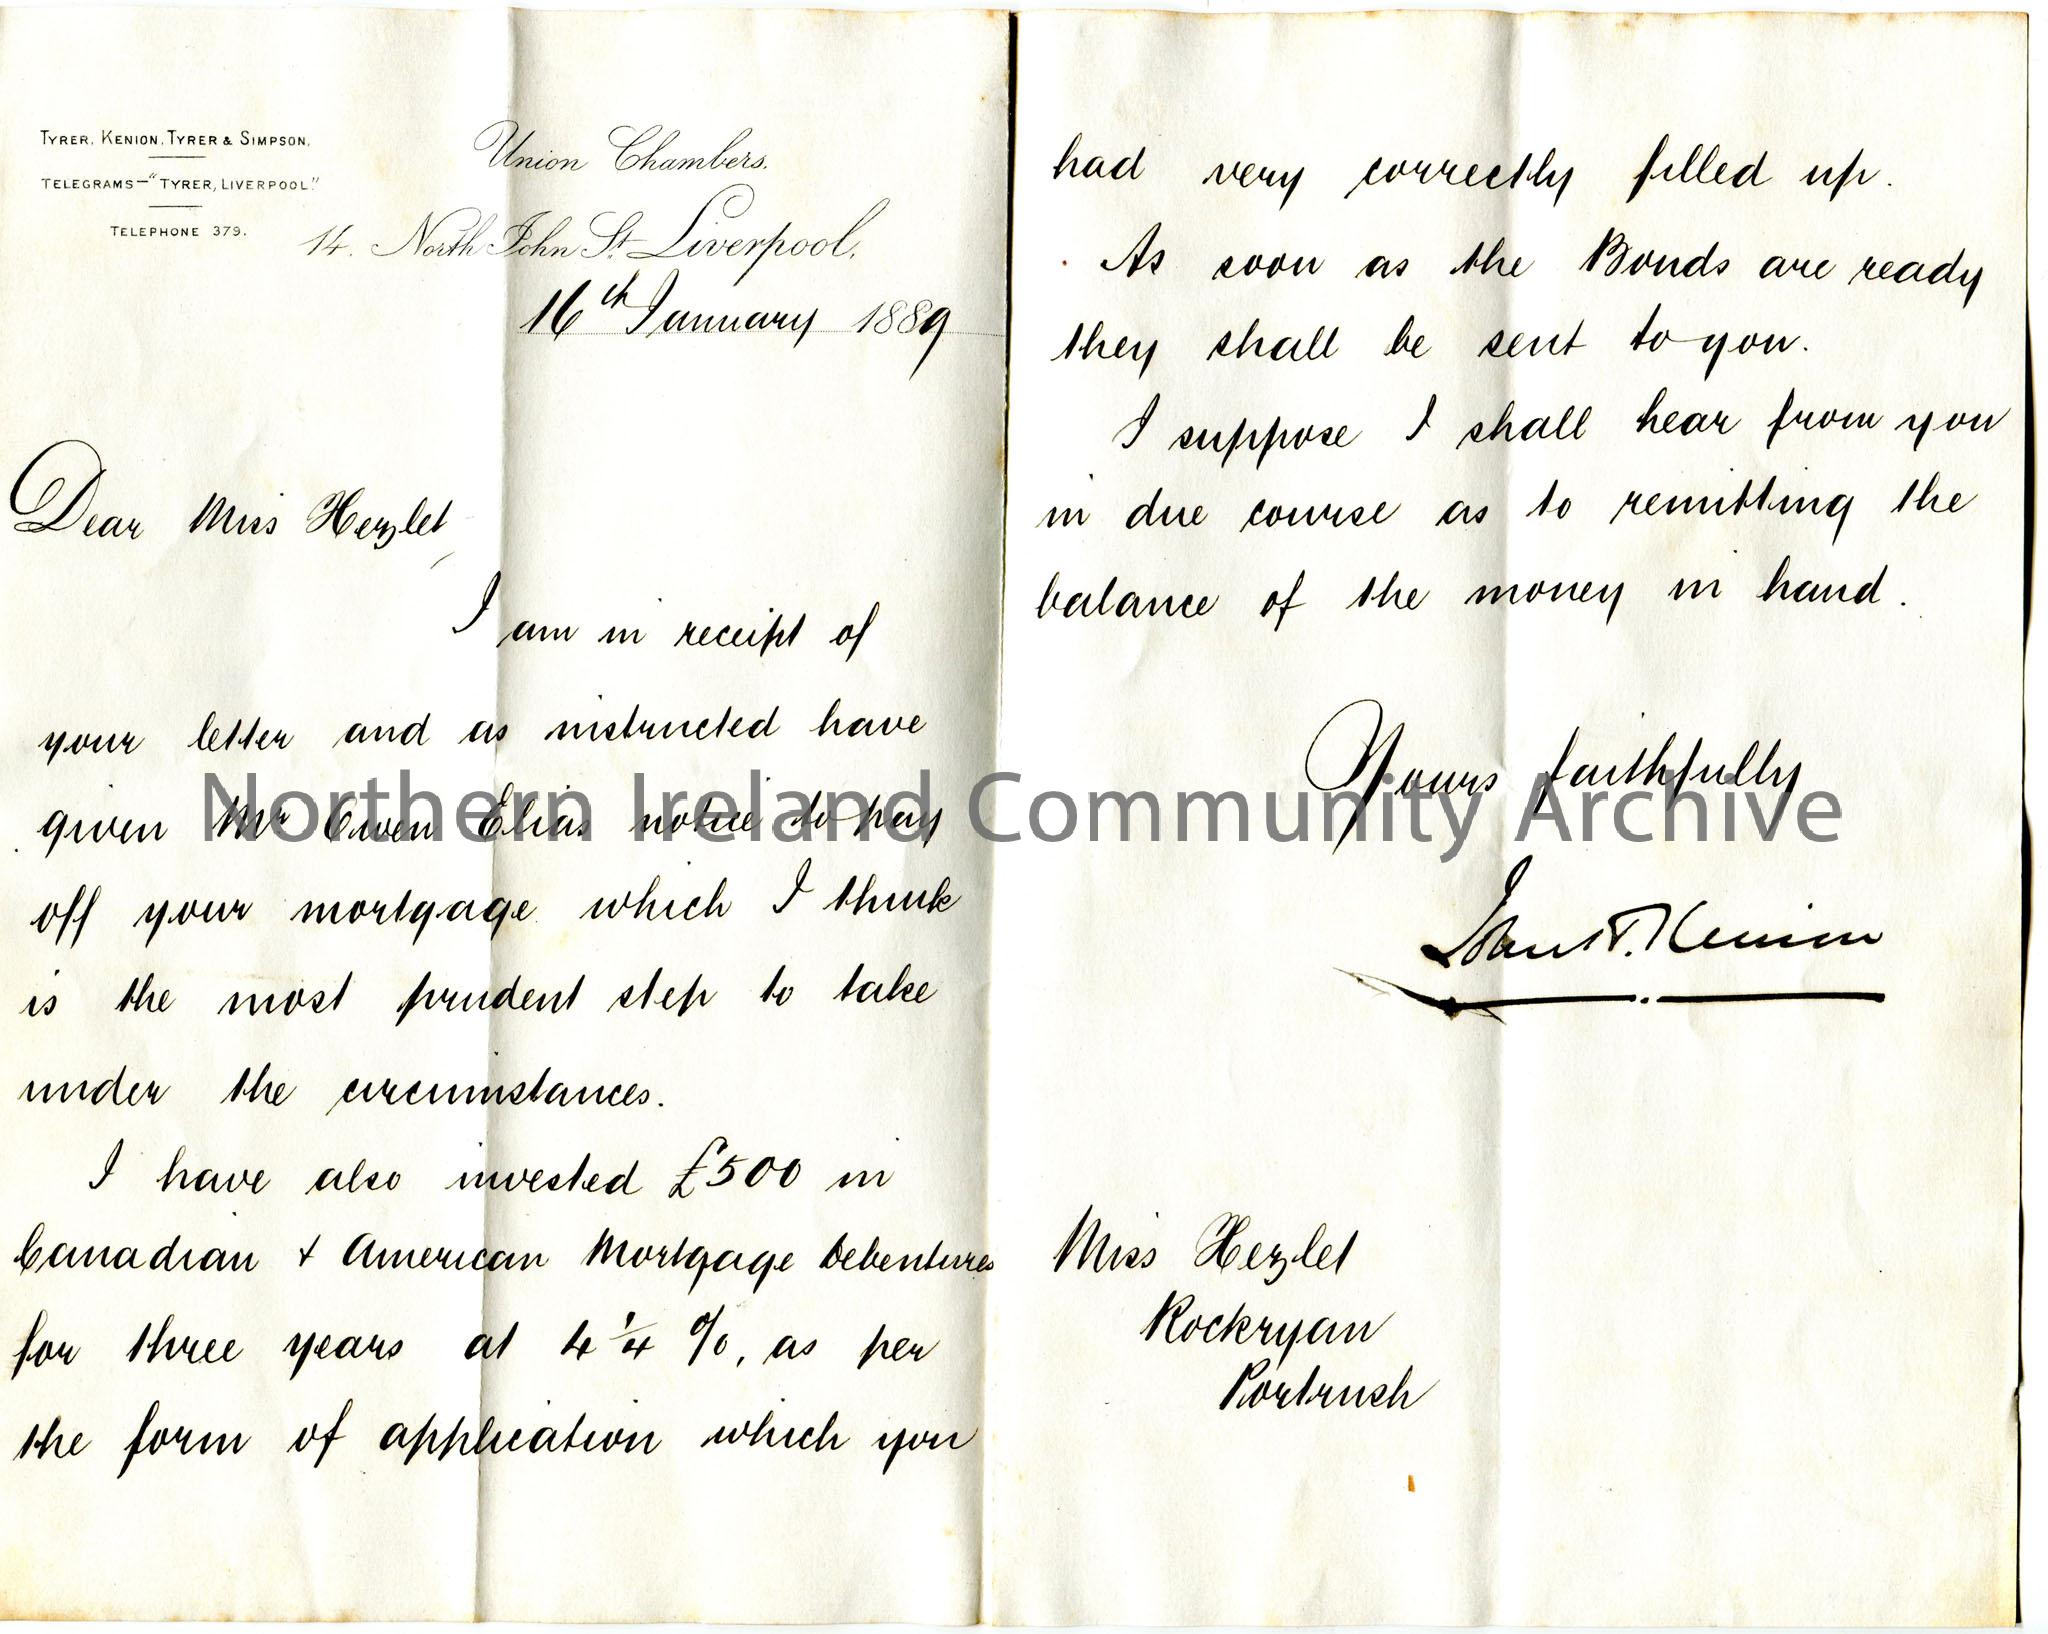 TYRER, KENION, TYRER & SIMPSON,
TELEGRAMS—"TYRER, LIVERPOOL."
TELEPHONE 379.
Union Chambers,
14. North John St. Liverpool,
16th January 1889
Dear Miss Hezlet,
I am in receipt of
your letter and as instructed have
given Mr Owen Elias notice to pay
off your mortgage which I think
is the most prudent step to take
under the circumstances.
I have also invested £500 in
Canadian & American Mortgage Debentures
for three years at 4 1/4 %, as per
the form of application which you
had very correctly filled up.
As soon as the Bonds are ready
they shall be sent to you.
I suppose I shall hear from you
in due course as to remitting the
balance of the money in hand.
Yours faithfully
Kenion
Miss Hezlet
Rockryan
Portrush
Northern Ireland Community Archive